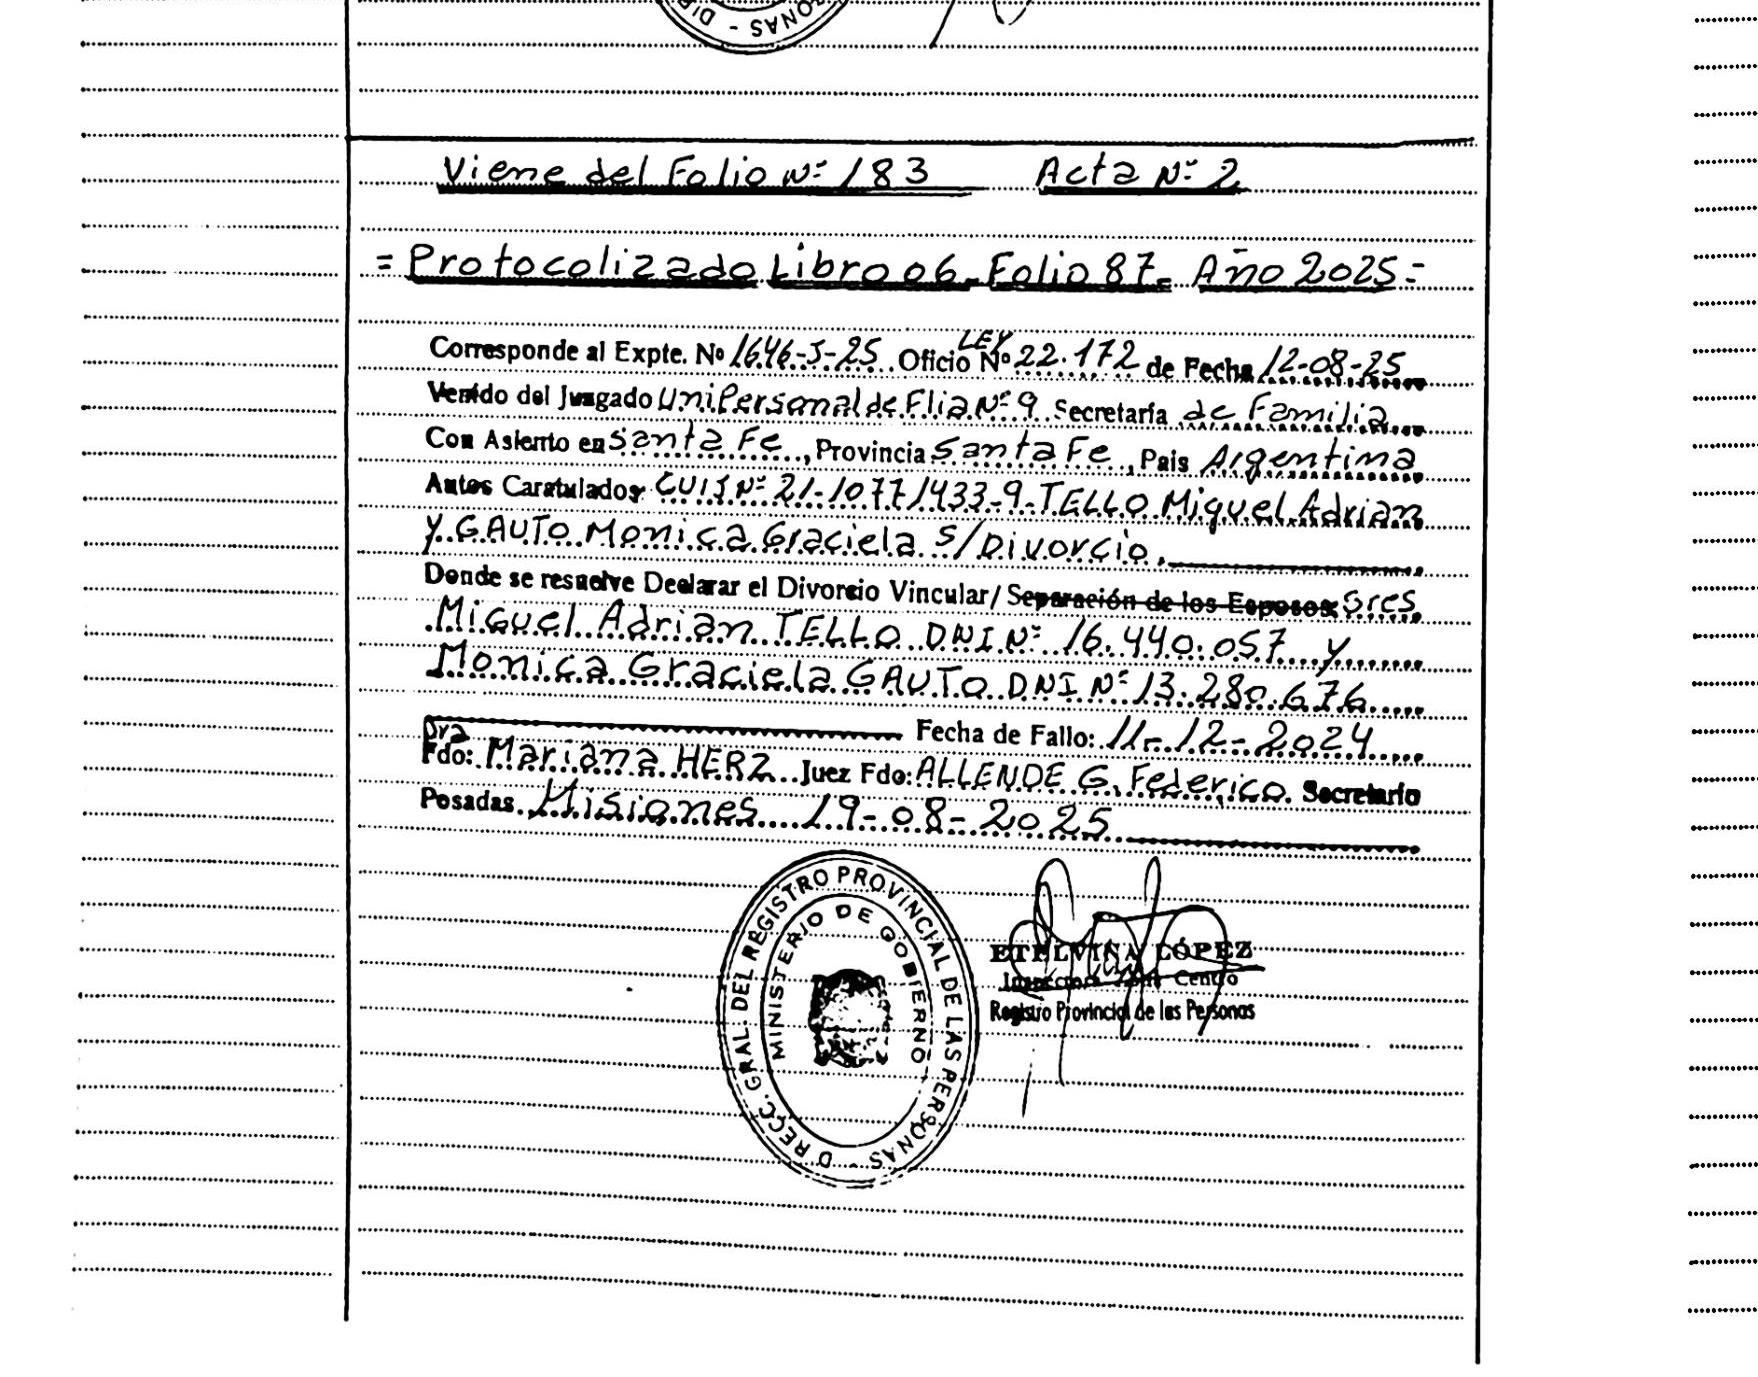 Viene del Folio Nº 183 Acta Nº 2
= Protocolizado Libro 06 - Folio 87 - Año 2025 =
LEY
Corresponde al Expte. Nº 1646-J-25 Oficio Nº 22.172 de Fecha 12-08-25
Venido del Juzgado UniPersonal de Flia Nº 9 Secretaría de Familia
Con Asiento en Santa Fe, Provincia Santa Fe, Pais Argentina
Autos Caratulados CUIJ Nº 21-10771433-9-TELLO Miguel Adrian
y GAUTO Monica Graciela s/Divorcio.
Donde se resuelve Declarar el Divorcio Vincular/ Separación de los Esposos: Sres
Miguel Adrian TELLO DNI Nº 16.440.057 y
Monica Graciela GAUTO DNI Nº 13.280.676
Fecha de Fallo: 11-12-2024
Dra
Fdo: Mariana HERZ Juez Fdo: ALLENDE G. Federico. Secretario
Posadas, Misiones 19-08-2025
DIRECC. GRAL. DEL REGISTRO PROVINCIAL DE LAS PERSONAS -
MINISTERIO DE GOBIERNO
ETELVINA LÓPEZ
Inspectora Zona Centro
Registro Provincial de las Personas